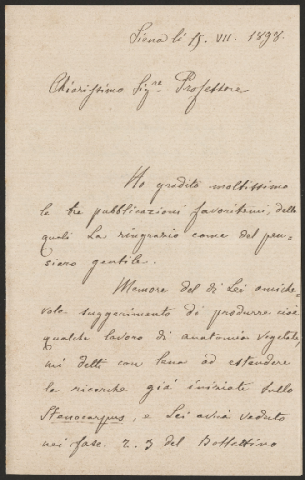 Siena li 15. VII. 1898.
Chiarissimo Sig.re Professore
Ho gradito moltissimo
le tre pubblicazioni favoritemi, delle
quali La ringrazio come del pen-
siero gentile.
Memore del di Lei amiche-
vole suggerimento di produrre cioè
qualche lavoro di anatomia vegetale,
mi detti con lena ad estendere
le ricerche già iniziate sullo
Stenocarpus, e Lei avrà veduto
nei fasc. 2. 3 del Bollettino